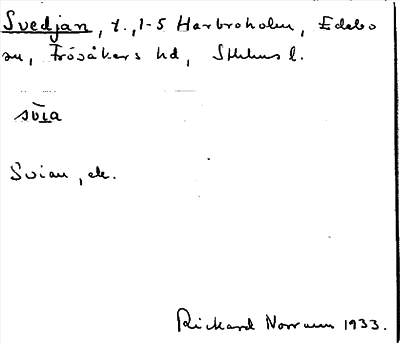 Svedjan, t., 1-5 Harbroholm, Edebo
sn, Frösåkers hd, Sthlms l.
svia
Svian, ek.
Rickard Norrman 1933.